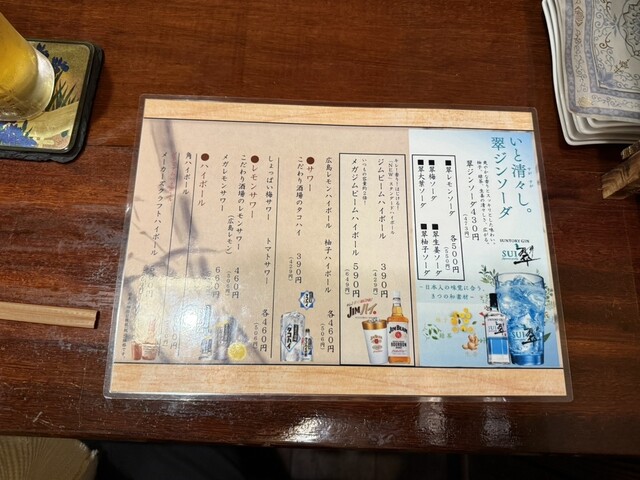 いと清々し。
翠ジンソーダ
翠ジンソーダ 430円
(473円)
■翠レモンソーダ
■翠梅ソーダ
■翠大葉ソーダ
各500円
(550円)
■翠生姜ソーダ
■翠柚子ソーダ
SUNTORY GIN
SUI 翠
~日本人の味覚に合う
3つの和素材~
ジムビームハイボール 390円
(429円)
メガジムビームハイボール 590円
(649円)
JIM BEAM
広島レモンハイボール 柚子ハイボール 各460円
(506円)
●サワー
こだわり酒場のタコハイ 390円
(429円)
しょっぱい梅サワー トマトサワー 各460円
(506円)
●レモンサワー
こだわり酒場のレモンサワー 460円
(506円)
メガレモンサワー (広島レモン) 660円
●ハイボール
角ハイボール
メーカーズクラフトハイボール